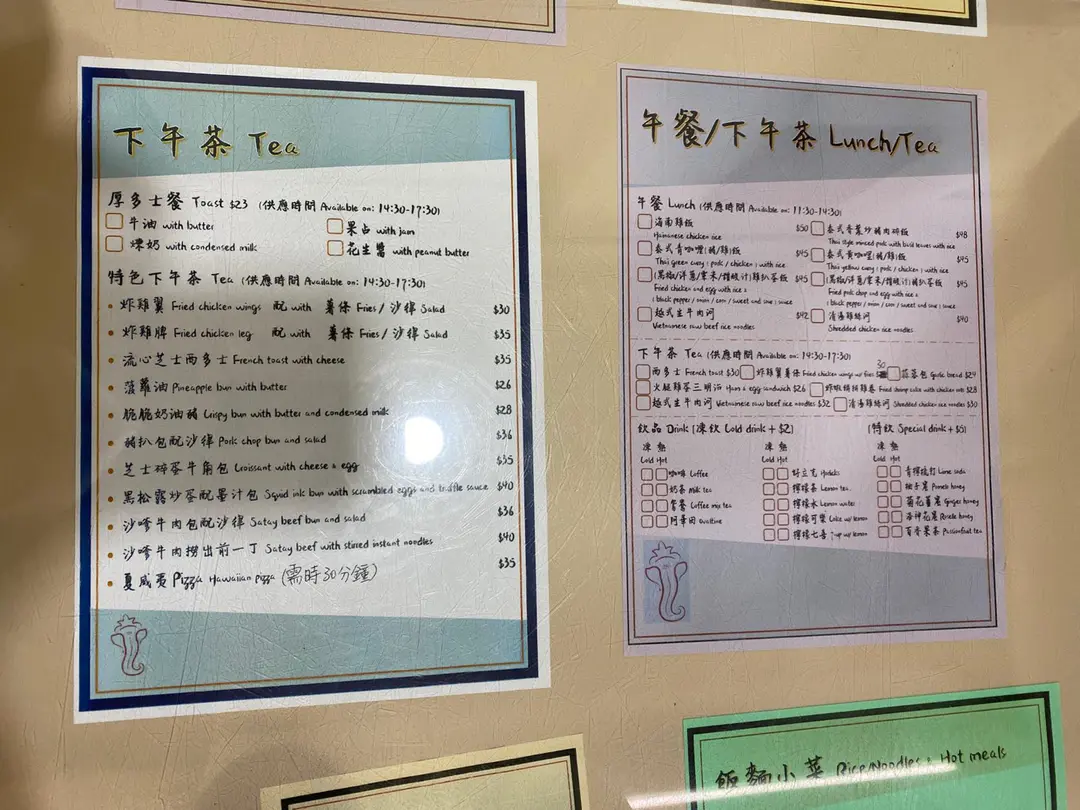 下午茶 Tea
厚多士餐 Toast $23 (供應時間 Available on: 14:30-17:30)
牛油 with butter 果占 with jam
煉奶 with condensed milk 花生醬 with peanut butter
特色下午茶 Tea (供應時間 Available on: 14:30-17:30)
炸雞翼 Fried chicken wings 配 with 薯條 Fries/沙律 Salad $30
炸雞髀 Fried chicken leg 配 with 薯條 Fries/沙律 Salad $35
流心芝士西多士 French toast with cheese $35
菠蘿油 Pineapple bun with butter $26
脆脆奶油豬 Crispy bun with butter and condensed milk $28
豬扒包配沙律 Pork chop bun and salad $36
芝士碎蛋牛角包 Croissant with cheese & egg $35
黑松露炒蛋配墨汁包 Squid ink bun with scrambled eggs and truffle sauce $40
沙嗲牛肉包配沙律 Satay beef bun and salad $36
沙嗲牛肉撈出前一丁 Satay beef with stirred instant noodles $40
夏威夷Pizza Hawaiian pizza (需時30分鐘) $35
午餐/下午茶 Lunch/Tea
午餐 Lunch (供應時間 Available on: 11:30-14:30)
海南雞飯 $50 泰式香葉炒豬肉碎飯 $48
Hainanese chicken rice Thai style minced pork with basil leaves with rice
泰式青咖喱(豬/雞)飯 $45 泰式黃咖喱(豬/雞)飯 $45
Thai green curry (pork / chicken) with rice Thai yellow curry (pork / chicken) with rice
(黑椒/洋蔥/粟米/甜酸汁)雞扒茶飯 $45 (黑椒/洋蔥/粟米/甜酸汁)豬扒茶飯 $45
Fried chicken and egg with rice & Fried pork chop and egg with rice &
(black pepper / onion / corn / sweet and sour) sauce (black pepper / onion / corn / sweet and sour) sauce
越式生牛肉河 $42 清湯雞絲河 $40
Vietnamese raw beef rice noodles Shredded chicken rice noodles
下午茶 Tea (供應時間 Available on: 14:30-17:30)
30
西多士 French toast $30 炸雞翼薯條 Fried chicken wings w/ fries 蒜蓉包 Garlic bread $24
火腿雞蛋三明治 Ham & egg sandwich $26 $28
越式生牛肉河 Vietnamese raw beef rice noodles $32 清湯雞絲河 Shredded chicken rice noodles $30
飲品 Drink [凍飲 Cold drink + $2] [特飲 Special drink + $5]
凍 熱 凍 熱 凍 熱
Cold Hot Cold Hot Cold Hot
咖啡 Coffee 好立克 Horlicks 青檸梳打 Lime soda
奶茶 Milk tea 檸檬茶 Lemon tea 柚子蜜 Pomelo honey
鴛鴦 Coffee mix tea 檸檬水 Lemon water 菊花薑蜜 Ginger honey
阿華田 Ovaltine 檸檬可樂 Coke w/ lemon 洛神花蜜 Roselle honey
檸檬七喜 7-up w/ lemon 百香果茶 Passionfruit tea
飯麵小菜 Rice/Noodles, Hot meals